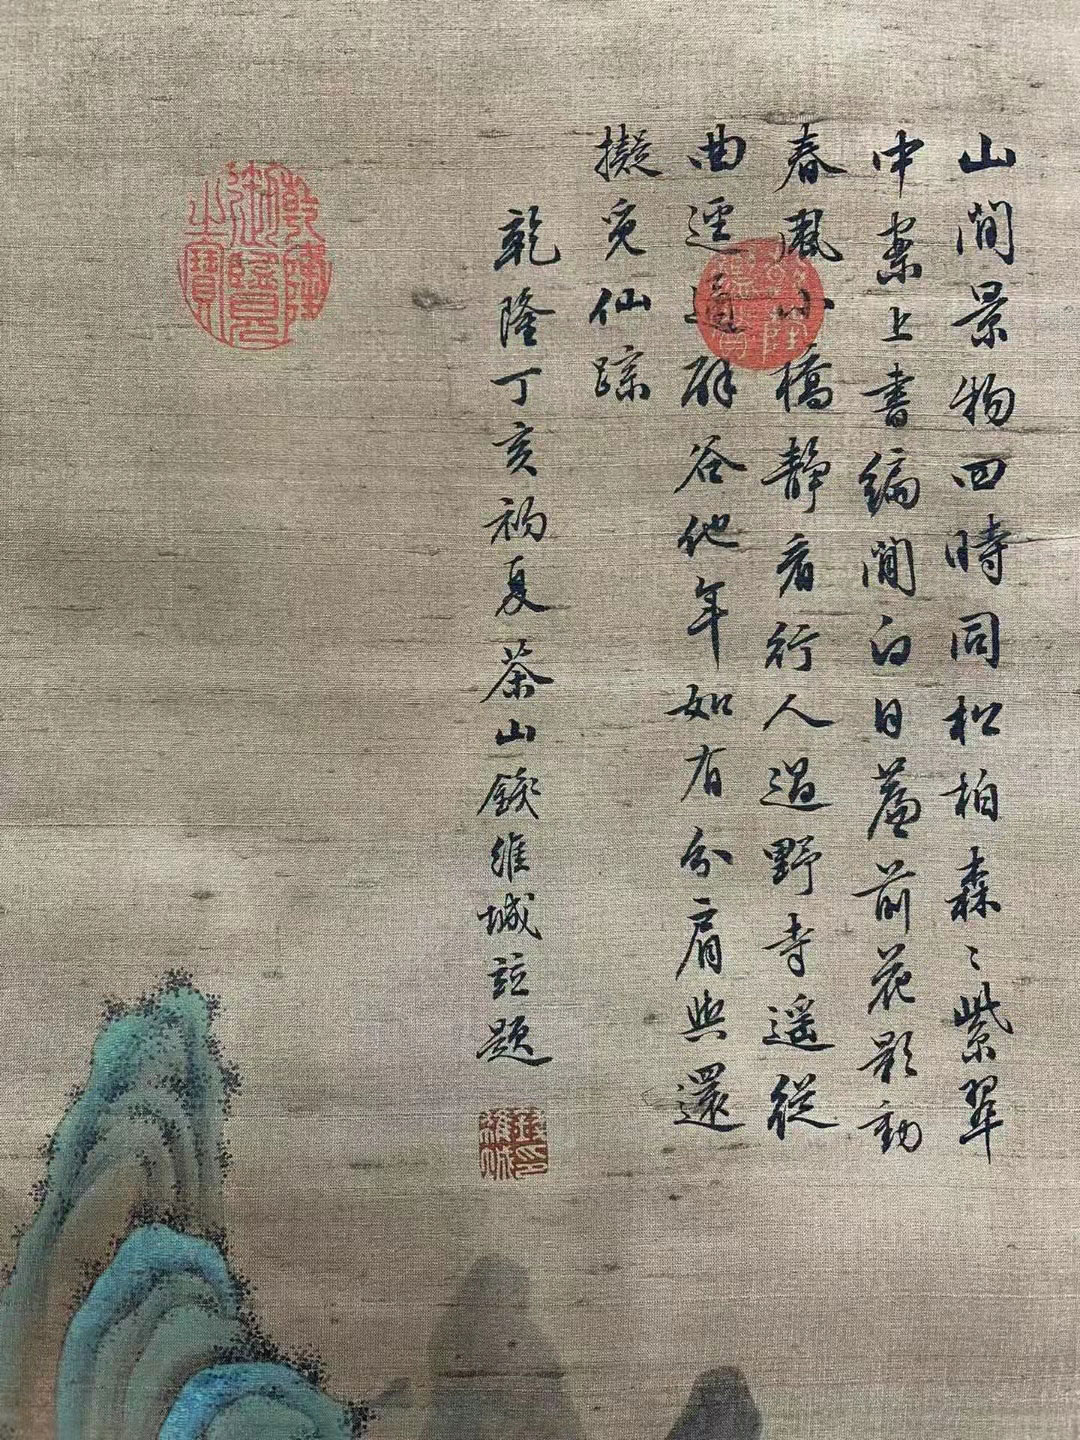 山間景物四時同松柏森〻紫翠
中案上書編閒白日簷前花影動
春風小橋静看行人過野寺遥從
曲逕通辟谷他年如有分肩與還
擬覓仙踪
乾隆丁亥初夏茶山錢維城竝題
乾隆御覽之寶
乾隆